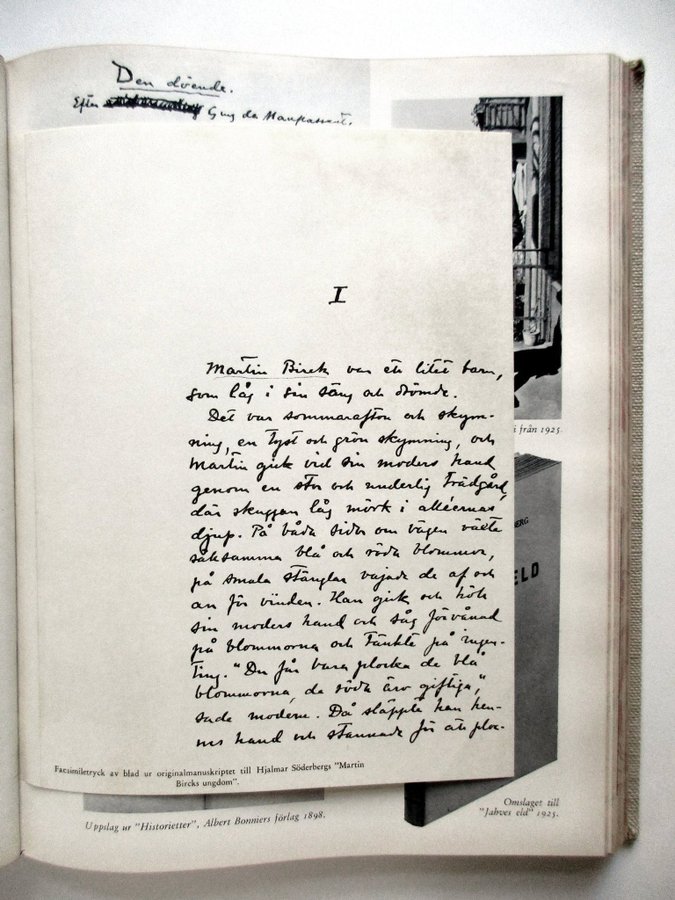 Den döende.
Efter Guy de Maupassant.
I
Martin Birck var ett litet barn,
som låg i sin säng och drömde.
Det var sommarafton och skym-
ning, en tyst och grön skymning, och
Martin gick vid sin moders hand
genom en stor och underlig trädgård,
där skuggan låg mörk i alléernas
djup. På båda sidor om vägen växte
sällsamma blå och röda blommor,
på smala stänglar vajade de af och
an för vinden. Han gick och höll
sin moders hand och såg förvånad
på blommorna och tänkte på ingen-
ting. "Du får bara plocka de blå
blommorna, de röda äro giftiga,"
sade modern. Då släppte han hen-
nes hand och stannade för att ploc-
Facsimiletryck av blad ur originalmanuskriptet till Hjalmar Söderbergs "Martin
Bircks ungdom".
i från 1925.
BERG
ELD
Uppslag ur "Historietter", Albert Bonniers förlag 1898.
Omslaget till
"Jahves eld" 1925.